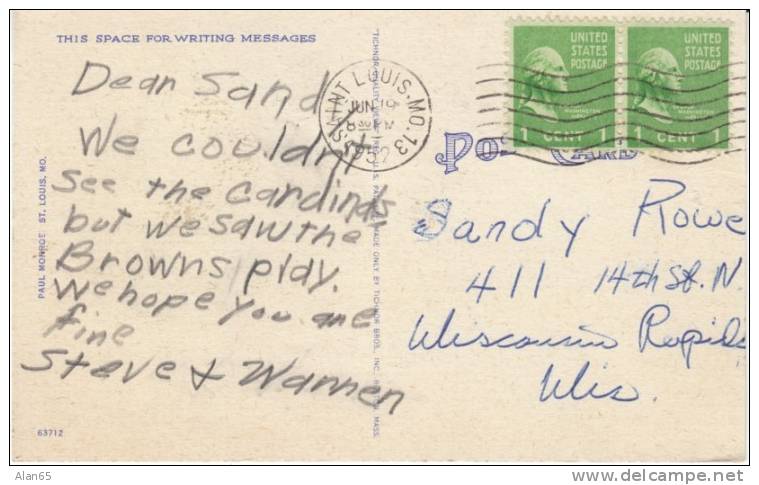 THIS SPACE FOR WRITING MESSAGES
Dear Sand
We couldn't
see the Cardinals
but we saw the
Browns play.
We hope you are
fine
Steve & Warren
63712
PAUL MONROE ST. LOUIS, MO.
MADE ONLY BY TICHNOR BROS., INC.
MASS.
SAINT LOUIS, MO. 13
JUN 19
8 30 PM
1952
UNITED
STATES
POSTAGE
WASHINGTON
1 CENT 1
UNITED
STATES
POSTAGE
WASHINGTON
1 CENT 1
POST CARD
Sandy Rowe
411 14th St. N.
Wisconsin Rapids
Wis.
Alan65
www.delcampe.net